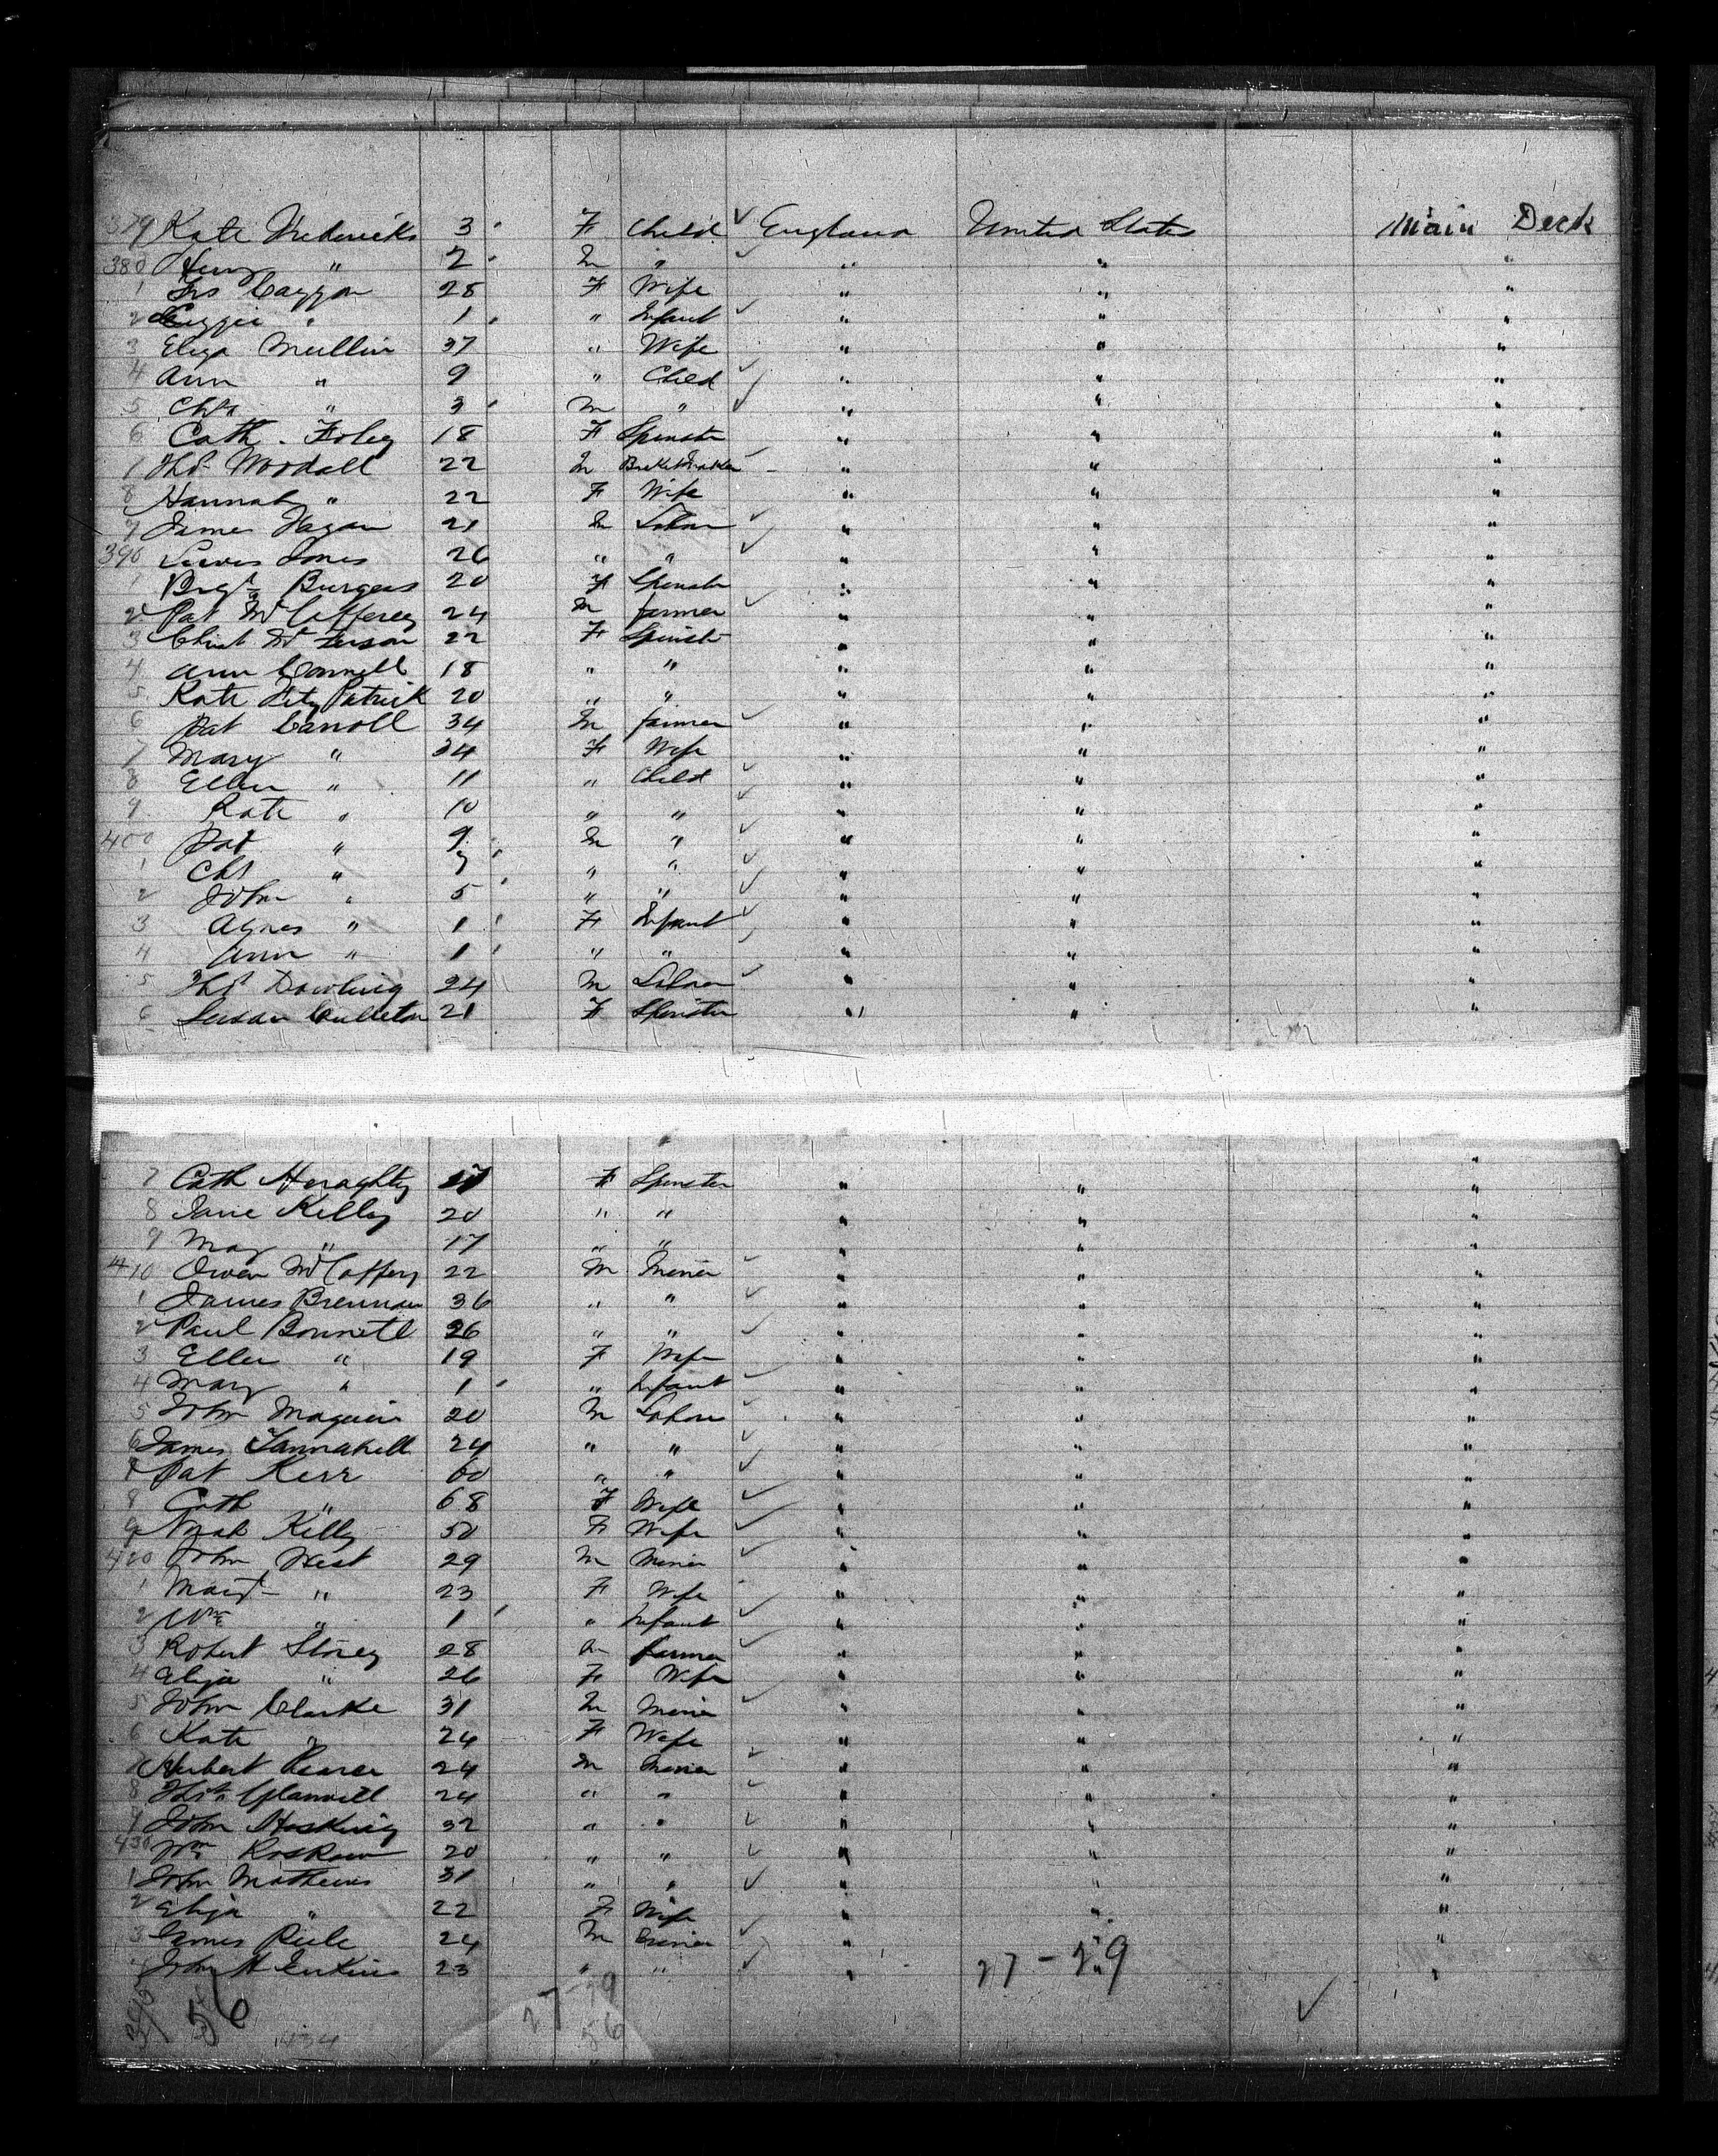 379 Kate Fredericks 3 F Child England United States Main Deck
380 Henry " 2 M " " " "
1 Caggan 28 F Wife " " "
2 Lizzie " 1 " Infant " " "
3 Eliza Mullin 37 " Wife " " "
4 Ann " 9 " Child " " "
5 Chs " 3 M " " " "
6 Cath. Foley 18 F Spinster " " "
7 Thos Woodall 22 M " " "
8 Hannah " 22 F Wife " " "
9 James Fagan 21 M Labor " " "
390 Lewis Jones 26 " " " " "
1 Brgt Burgess 20 F Spinster " " "
2 Pat McCafferey 24 M farmer " " "
3 Christ 22 F Spinster " " "
4 Ann Connell 18 " " " " "
5 Kate Fitz Patrick 20 " " " " "
6 Pat Carroll 34 M farmer " " "
7 Mary " 34 F Wife " " "
8 Ellen " 11 " Child " " "
9 Kate " 10 " " " " "
400 Pat " 9 M " " " "
1 Chs " 7 " " " " "
2 John " 5 " " " " "
3 Agnes " 1 F Infant " " "
4 Ann " 1 " " " " "
5 Thos Dowling 24 M Labor " " "
6 Susan Culleton 21 F Spinster " " "
7 Cath Heraghty 17 F Spinster " " "
8 Jane Kelly 20 " " " " "
9 May " 17 " " " " "
410 Owen McCaffery 22 M Miner " " "
1 James Brennan 36 " " " " "
2 Paul Bonnett 26 " " " " "
3 Ellen " 19 F Wife " " "
4 Mary " 1 " Infant " " "
5 John Maguire 20 M Labor " " "
6 James Tannahill 24 " " " " "
7 Pat Kerr 60 " " " " "
8 Cath " 68 F Wife " " "
9 Norah Kelly 50 F Wife " " "
420 John West 29 M Miner " " "
1 Margt " 23 F Wife " " "
2 Wm " 1 " Infant " " "
3 Robert Storey 28 M farmer " " "
4 Eliza " 26 F Wife " " "
5 John Clarke 31 M Miner " "
6 Kate " 24 F Wife " " "
7 Herbert Pearce 24 M Miner " " "
8 Thos Glanvill 24 " " " " "
9 John Hosking 32 " " " " "
430 Wm Roskrow 20 " " " " "
1 John Mathews 31 " " " " "
2 Eliza " 22 F Wife " " "
3 James 24 M Miner " "
4 John H Jenkins 23 " " " "
27-29
56
27-29
56
434